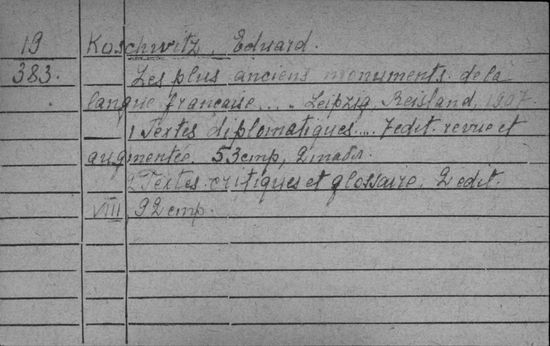 19 Koschwitz, Eduard.
383. Les plus anciens monuments de la
langue française.... Leipzig, Reisland, 1907
1 Textes diplomatiques.... 7 edit. revue et
augmentée. 53 стр, 2 табл.
2 Textes critiques et glossaire. 2 edit.
VIII, 92 стр.